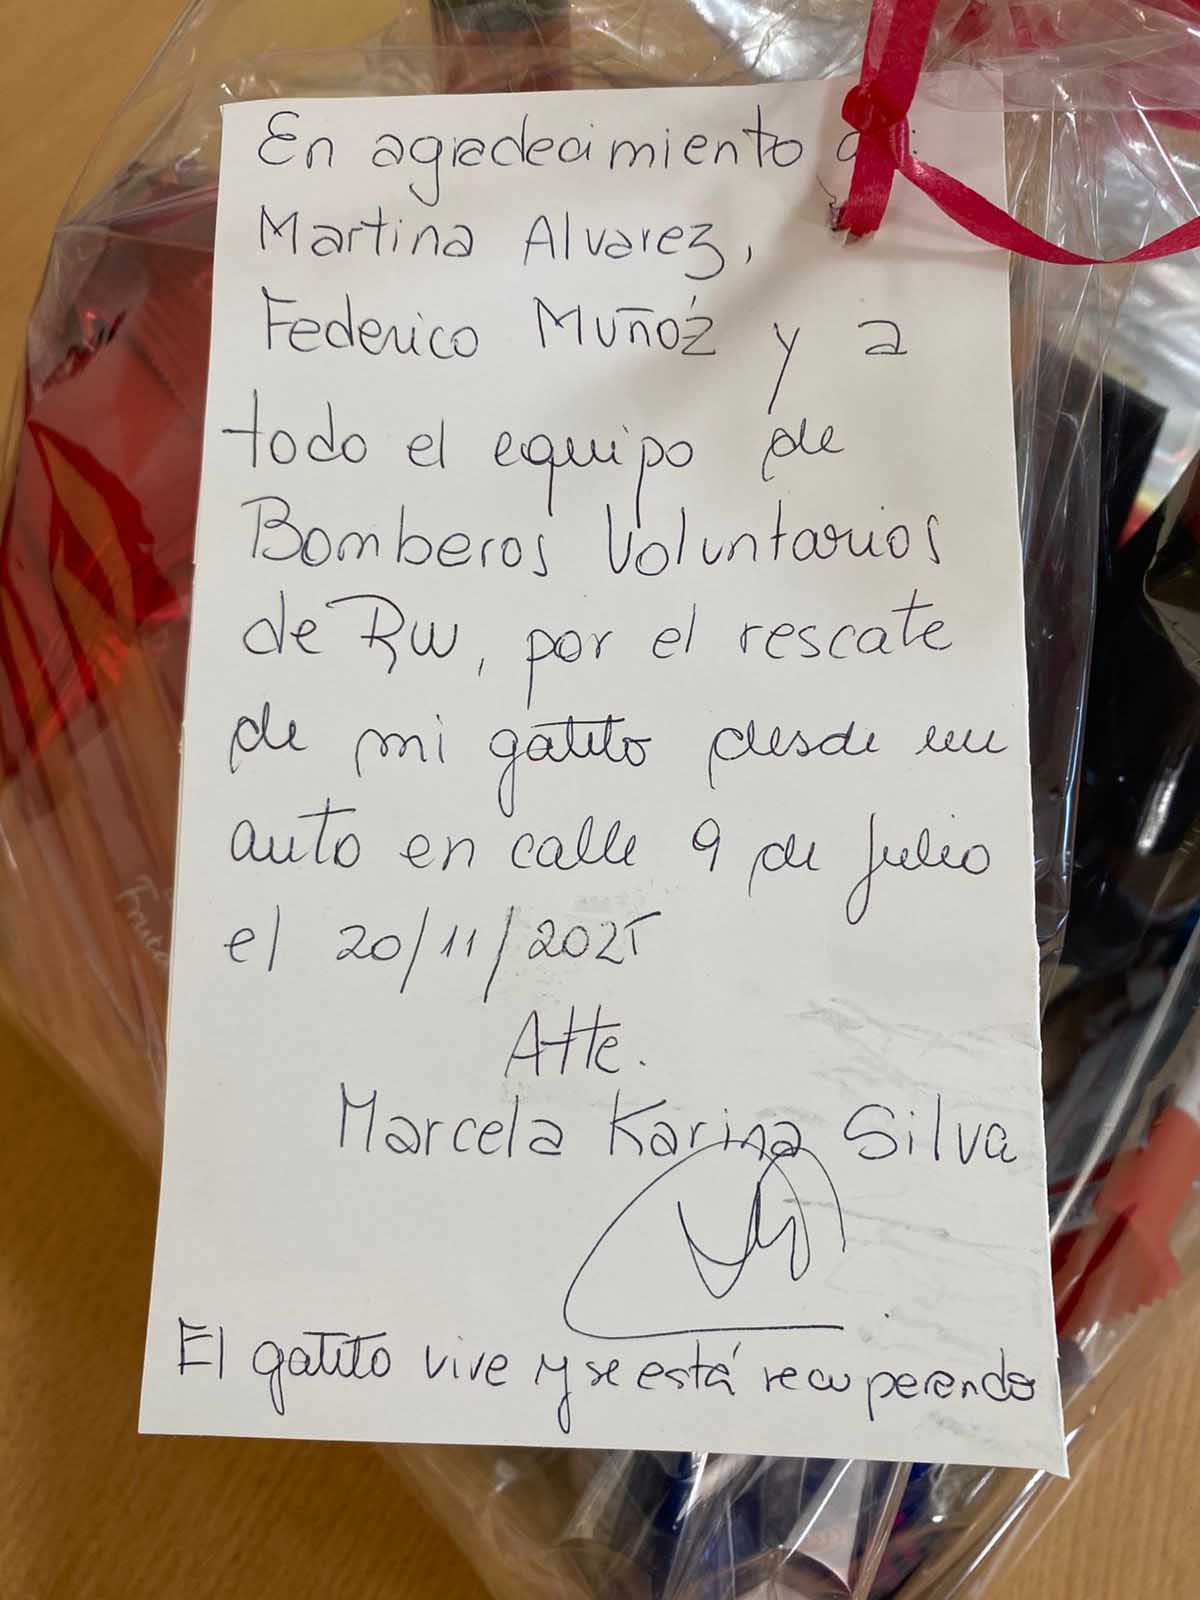 En agradecimiento a:
Martina Alvarez,
Federico Muñóz y a
todo el equipo de
Bomberos Voluntarios
de RW, por el rescate
de mi gatito desde un
auto en calle 9 de Julio
el 20/11/2025
Atte.
Marcela Karina Silva
El gatito vive y se está recuperando